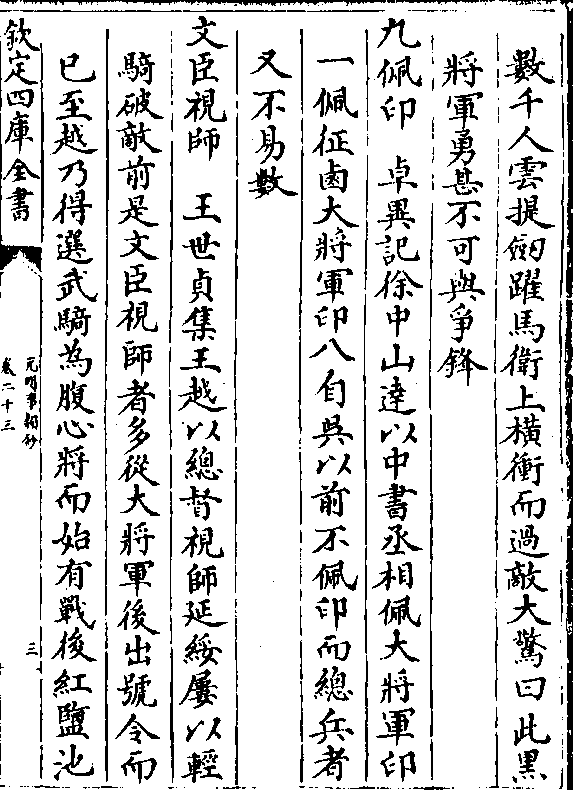 數千人雲提劒躍馬衛上橫衝而過敵大驚曰此黑
將軍勇甚不可與爭鋒
九佩印　卓異記徐中山達以中書丞相佩大將軍印
一佩征鹵大將軍印八自吳以前不佩印而總兵者
又不易數
文臣視師　王世貞集王越以總督視師延綏屢以輕
騎破敵前是文臣視師者多從大將軍後出號令而
已至越乃得選武騎為腹心將而始有戰後紅鹽池
欽定四庫全書
元明事類鈔
卷二十三
三